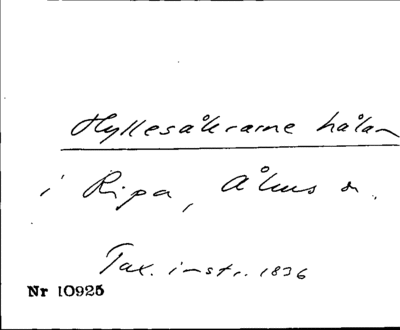 Hyllesåkrarne hålan
i Ripa, Åhus sn.
Tax. instr. 1836
Nr 10925